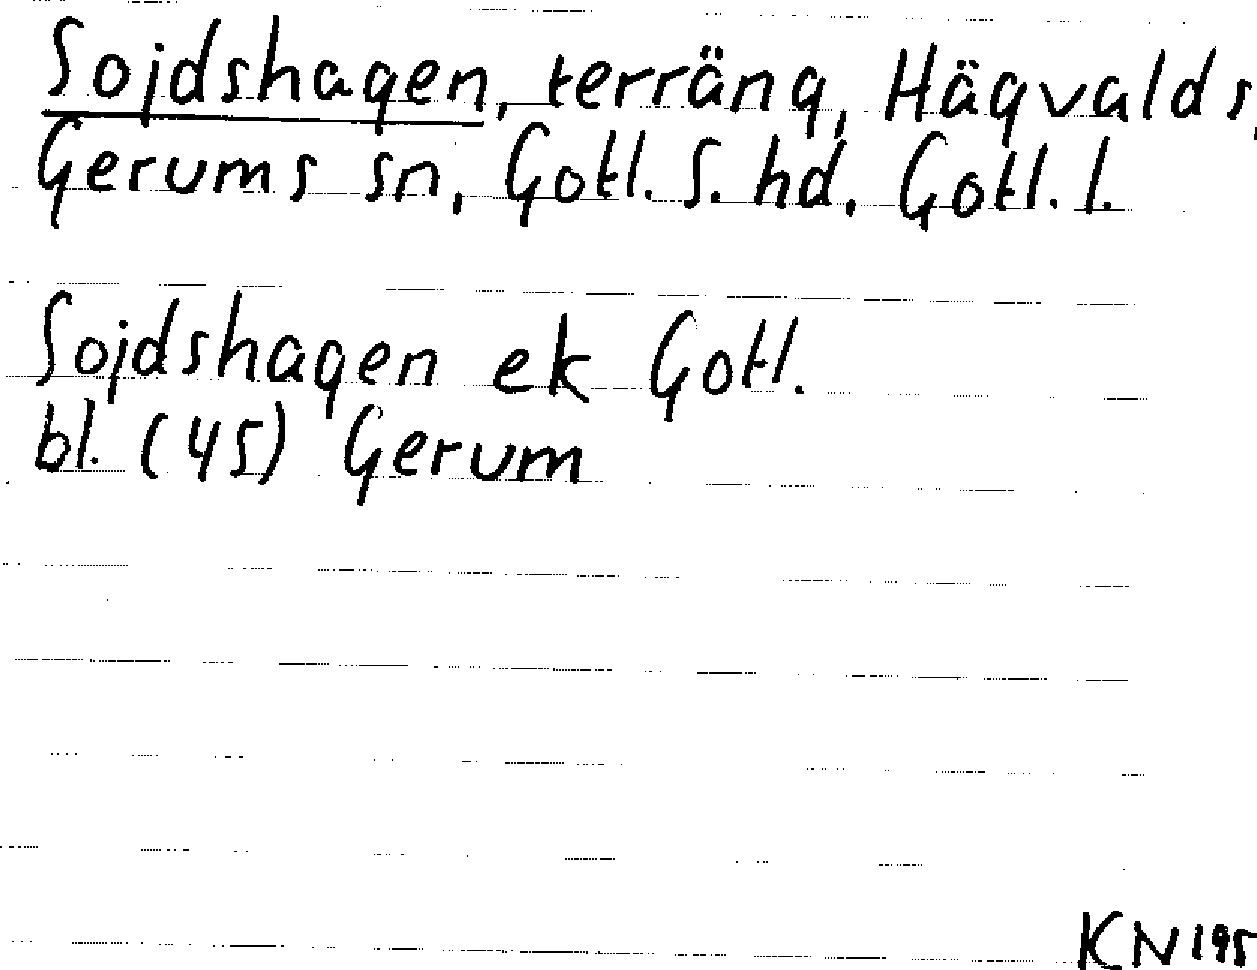 Sojdshagen, terräng, Hägvalds,
Gerums sn, Gotl. S. hd. Gotl. l.
Sojdshagen ek Gotl.
bl. (45) Gerum
KN 195